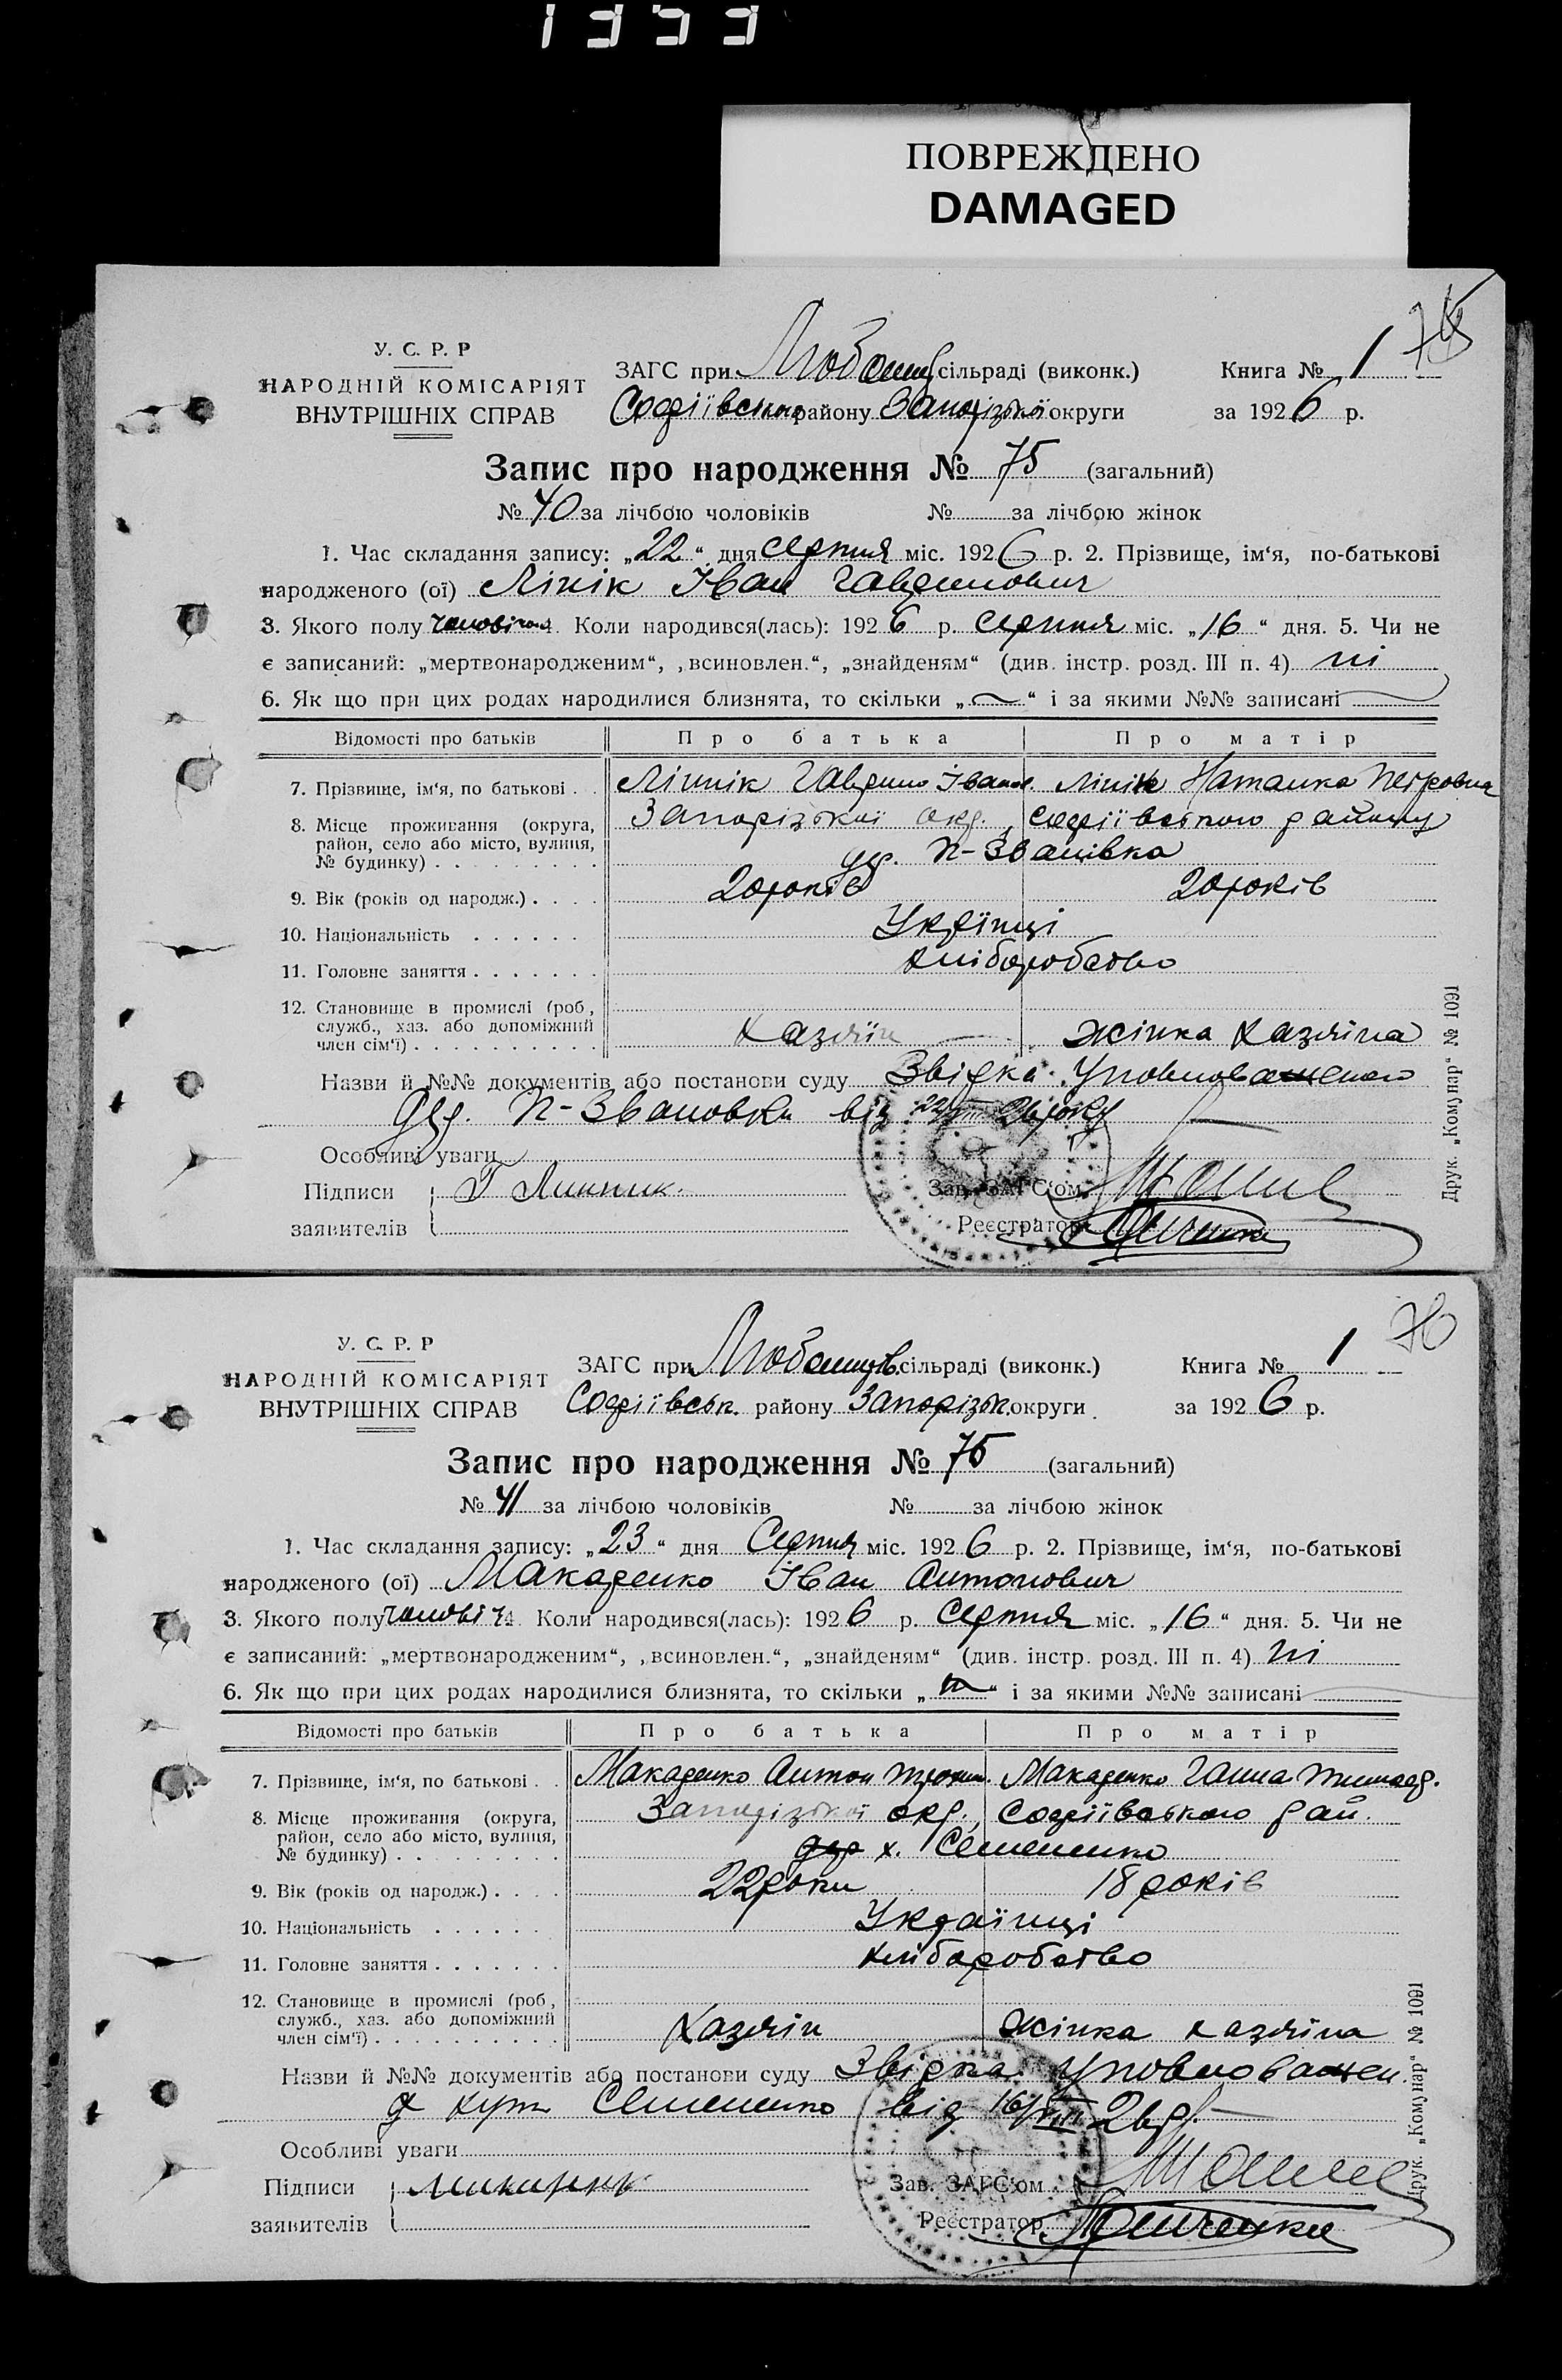 1353
ПОВРЕЖДЕНО
DAMAGED
75
У. С. Р. Р
НАРОДНІЙ КОМІСАРІЯТ
ВНУТРІШНІХ СПРАВ
ЗАГС при сільраді (виконк.) Книга № 1
Софіївського району Запорізької округи за 1926 р.
Запис про народження № 75 (загальний)
№ 40 за лічбою чоловіків № за лічбою жінок
1. Час складання запису: „22“ дня серпня міс. 1926 р. 2. Прізвище, ім‘я, по-батькові
народженого (ої) Лінік Іван Гаврилович
3. Якого полу чоловічоя Коли народився(лась): 1926 р. серпня міс. „16“ дня. 5. Чи не
є записаний: „мертвонародженим“, „всиновлен.“, „знайденям“ (див. інстр. розд. III п. 4) ні
6. Як що при цих родах народилися близнята, то скільки „—“ і за якими №№ записані
Відомості про батьків Про батька Про матір
7. Прізвище, ім‘я, по батькові . . Ліннік Гаврило Іванов. Лінік Наталка Петровна
8. Місце проживання (округа, район, село або місто, вулиця, № будинку) Запорізької окр., Софіївського району
дер. П-Званівка
9. Вік (років од народж.) 20 років 20 років
10. Національність Укрїнці
11. Головне заняття хліборобство
12. Становище в промислі (роб, служб., хаз. або допоміжний член сім‘ї) Хазяїн — жінка хазяіна
Назви й №№ документів або постанови суду Звірка Уповноваженого
дер. П-Звановки від 22/VIII 26 року
Особливі уваги
Підписи Г Линник.
заявителів
Зав. ЗАГС‘ом
Реєстратор
Друк. „Комунар“ № 1091
76
У. С. Р. Р
НАРОДНІЙ КОМІСАРІЯТ
ВНУТРІШНІХ СПРАВ
ЗАГС при сільраді (виконк.) Книга № 1
Софіївськ. району Запорізьк. округи за 1926 р.
Запис про народження № 76 (загальний)
№ 41 за лічбою чоловіків № за лічбою жінок
1. Час складання запису: „23“ дня Серпня міс. 1926 р. 2. Прізвище, ім‘я, по-батькові
народженого (ої) Макаренко Іван Антонович
3. Якого полу чоловіч. Коли народився(лась): 1926 р. Серпня міс. „16“ дня. 5. Чи не
є записаний: „мертвонародженим“, „всиновлен.“, „знайденям“ (див. інстр. розд. III п. 4) ні
6. Як що при цих родах народилися близнята, то скільки „ “ і за якими №№ записані
Відомості про батьків Про батька Про матір
7. Прізвище, ім‘я, по батькові . . Макаренко Антон Макаренко Ганна
8. Місце проживання (округа, район, село або місто, вулиця, № будинку) Запорізької окр., Софіївського рай.
дер х. Семененко
9. Вік (років од народж.) 22 роки 18 років
10. Національність Українці
11. Головне заняття хліборобство
12. Становище в промислі (роб, служб., хаз. або допоміжний член сім‘ї) Хазяін жінка хазяіна
Назви й №№ документів або постанови суду Звірка Уповноважен.
Семененко від 16/VIII 26 р.
Особливі уваги
Підписи
заявителів
Зав. ЗАГС‘ом
Реєстратор
Друк. „Комунар“ № 1091